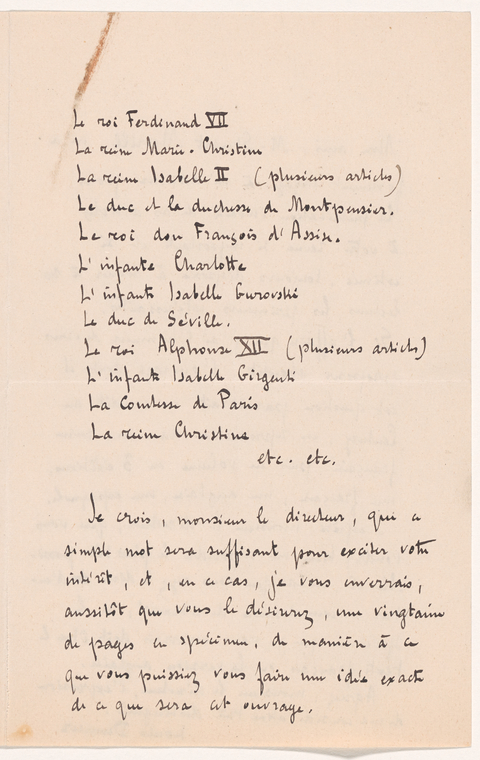 Le roi Ferdinand VII
La reine Marie-Christine
La reine Isabelle II (plusieurs articles)
Le duc et la duchesse de Montpensier.
Le roi don François d'Assise.
L'infante Charlotte
L'infante Isabelle Gurovski
Le duc de Séville.
Le roi Alphonse XII (plusieurs articles)
L'infante Isabelle Girgenti
La Comtesse de Paris
La reine Christine
etc. etc.
Je crois, monsieur le directeur, que ce
simple mot sera suffisant pour exciter votre
intérêt, et, en ce cas, je vous enverrais,
aussitôt que vous le désirerez, une vingtaine
de pages en spécimen, de manière à ce
que vous puissiez vous faire une idée exacte
de ce que sera cet ouvrage.